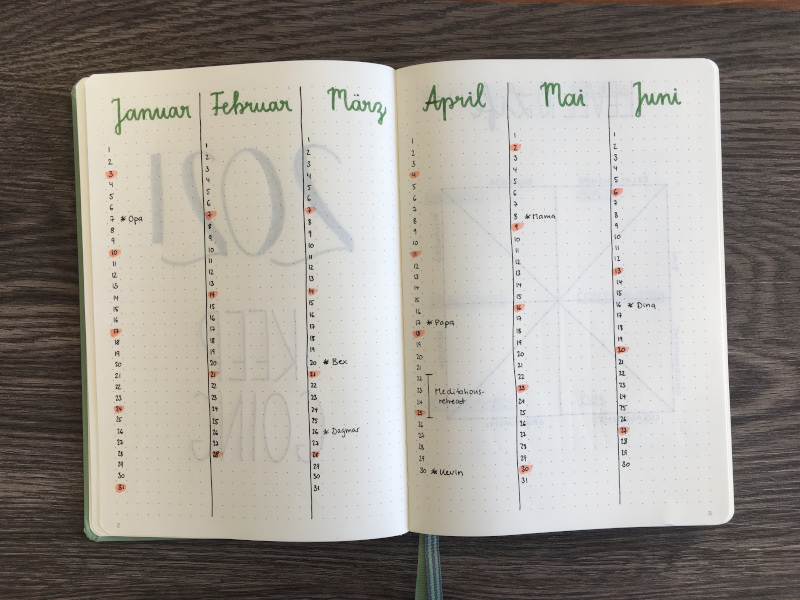 Januar
1
2
3
4
5
6
7 * Opa
8
9
10
11
12
13
14
15
16
17
18
19
20
21
22
23
24
25
26
27
28
29
30
31
Februar
1
2
3
4
5
6
7
8
9
10
11
12
13
14
15
16
17
18
19
20
21
22
23
24
25
26
27
28
März
1
2
3
4
5
6
7
8
9
10
11
12
13
14
15
16
17
18
19
20 * Bex
21
22
23
24
25
26 * Dagmar
27
28
29
30
31
April
1
2
3
4
5
6
7
8
9
10
11
12
13
14
15
16
17 * Papa
18
19
20
21
22
23 Meditations-
24 retreat
25
26
27
28
29
30 * Kevin
Mai
1
2
3
4
5
6
7
8 * Mama
9
10
11
12
13
14
15
16
17
18
19
20
21
22
23
24
25
26
27
28
29
30
31
Juni
1
2
3
4
5
6
7
8
9
10
11
12
13
14
15
16 * Dina
17
18
19
20
21
22
23
24
25
26
27
28
29
30
2
3